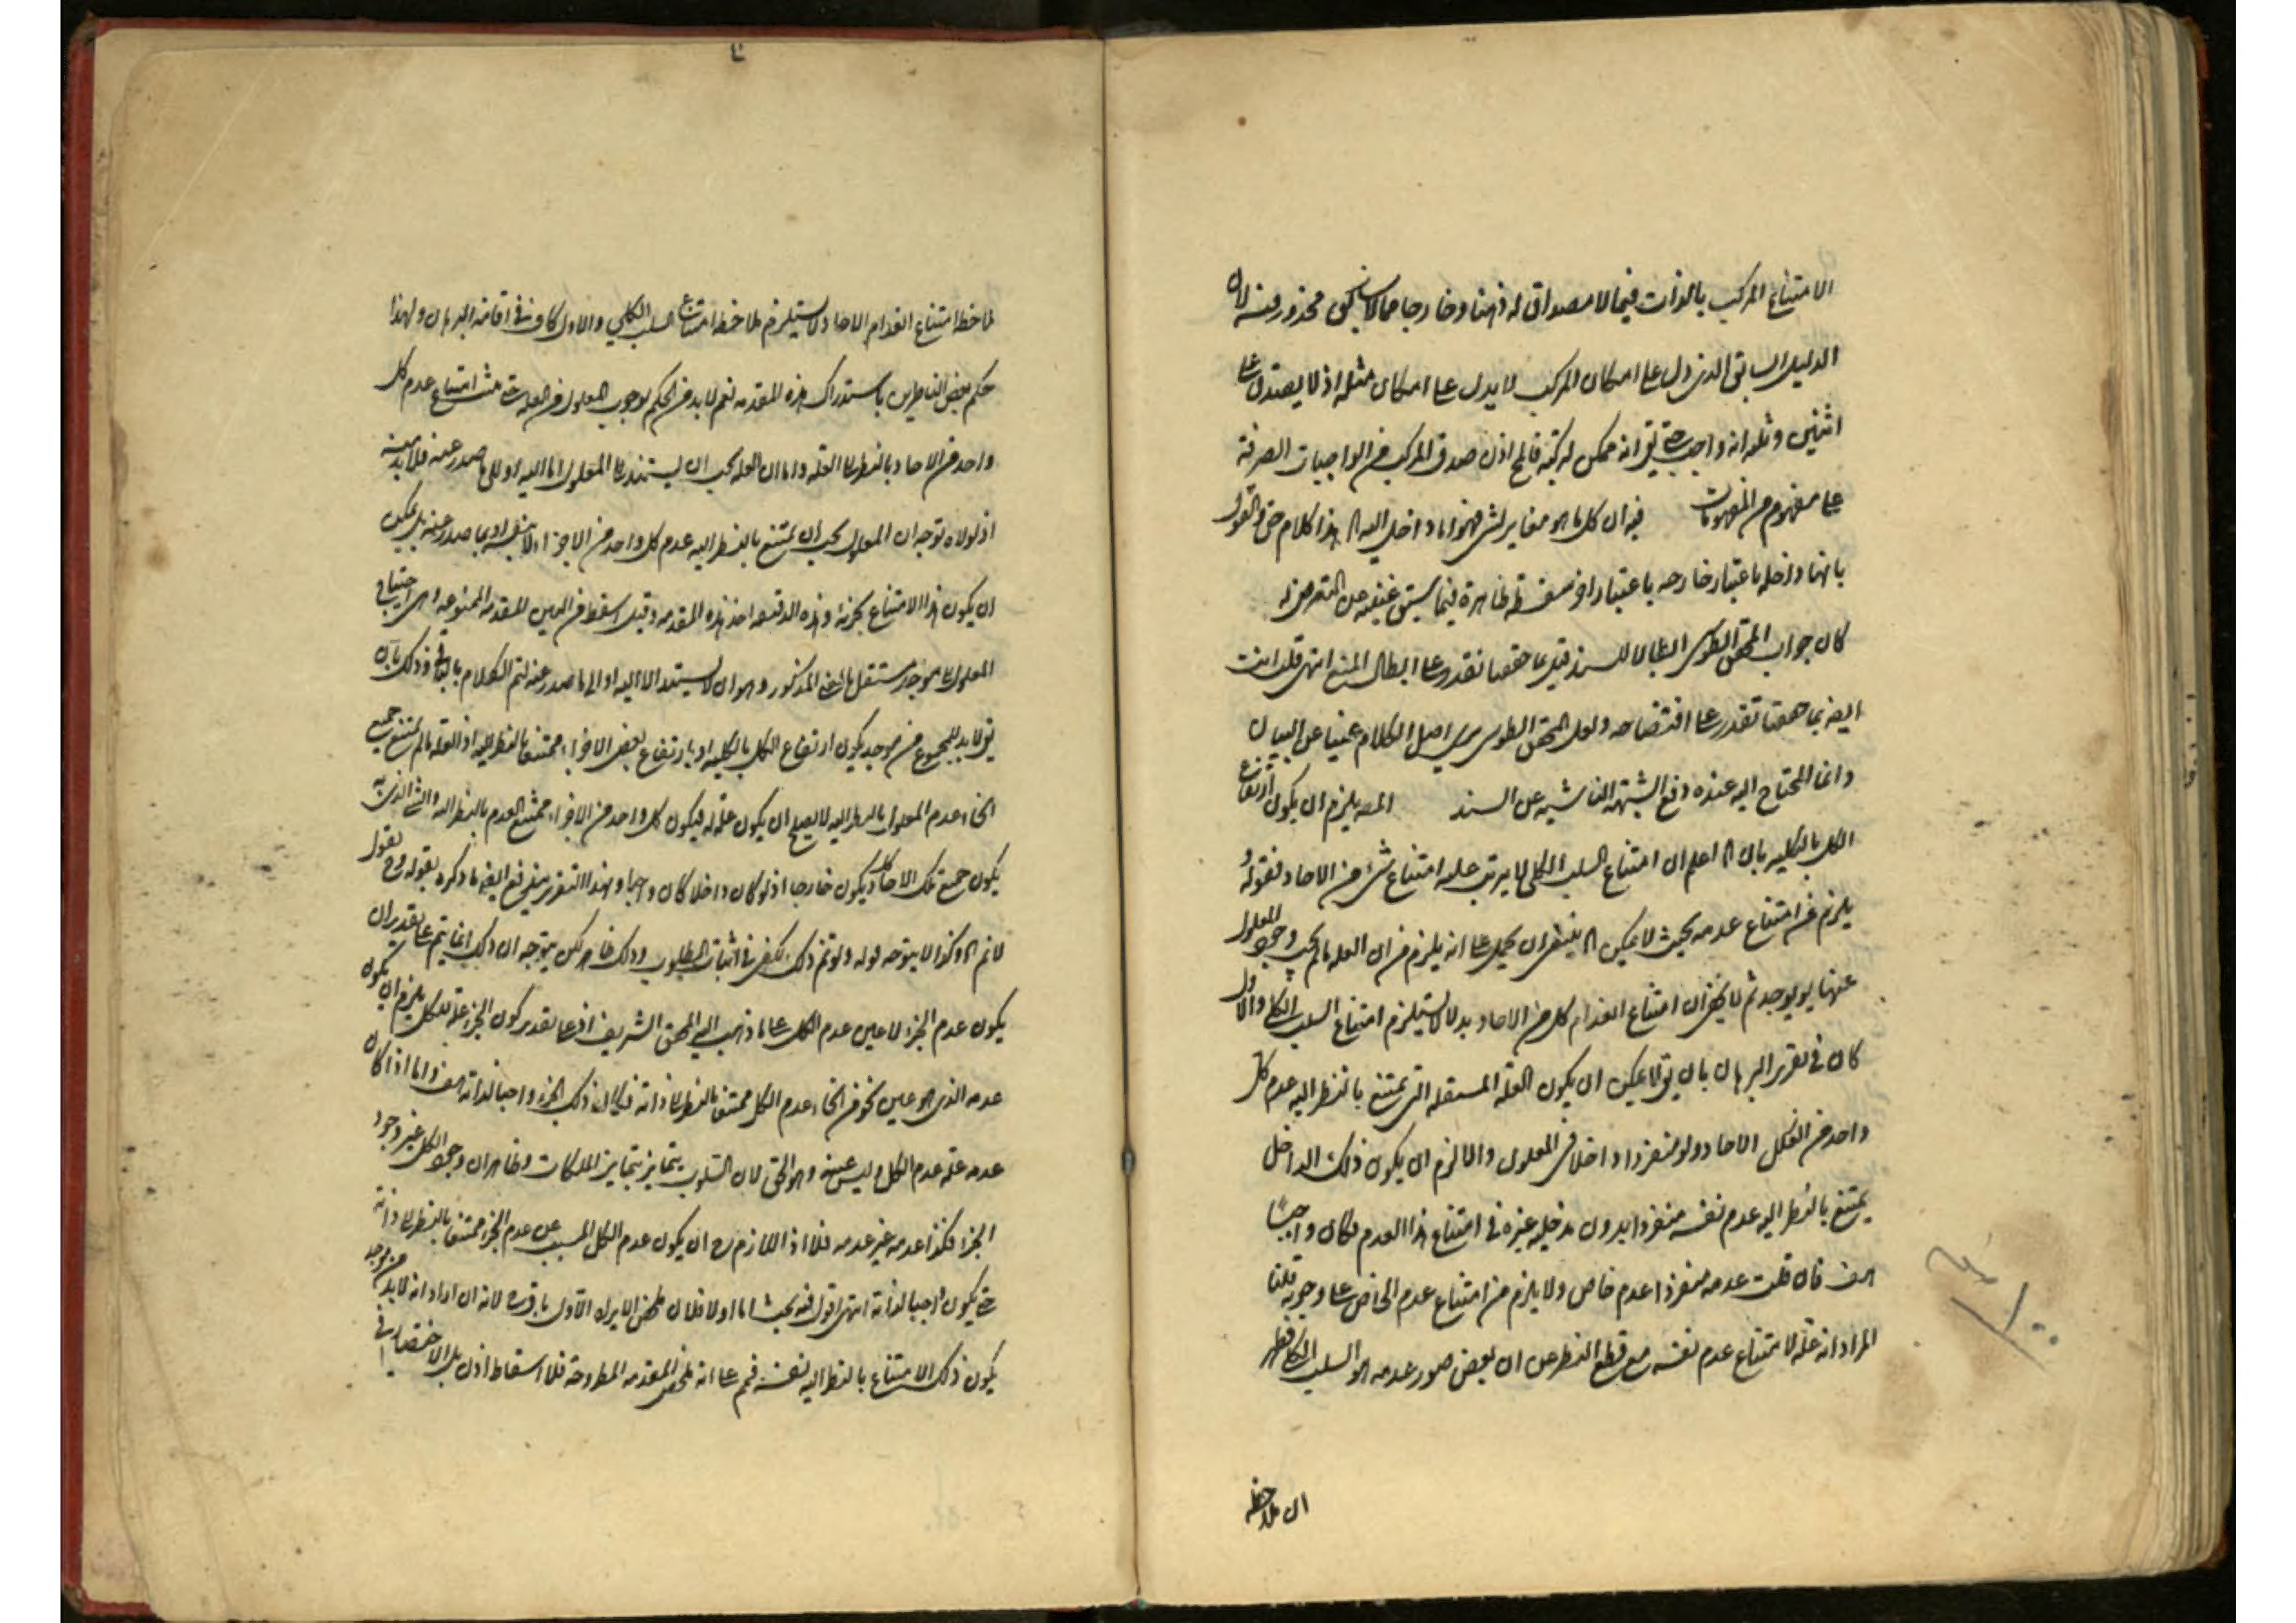 الامتناع المركب بالذات فيما لا مصداق له ذهنا وخارجا مما لا محذور فيه لان
الدليل السابق الذي دل على امكان المركب لا يدل على امكان مثله اذ لا يصدق على
اثنين وثلثه انه واجب حتى يق انه ممكن لتركبه فالح اذن صدق المركب من الواجبات الصرفة
على مفهوم من المفهومات فيه ان كل ما هو مغاير لشئ فهو اما داخل اليه الخ هذا كلام حق والقول
بانها داخله باعتبار خارجه باعتبار اخر سفسطه ظاهرة فيما سبق غنية عن التعرض له
كان جواب المحقق الطوسي ابطالا للسند قيل ما حققنا تقدر على ابطال المنع انتهى قلت انت
ايضه بما حققنا تقدر على افتضاحه ولعل المحقق الطوسي يرى اصل الكلام غنيا عن البيان
وانما المحتاج اليه عنده دفع الشبهة الناشيه عن السند المص يلزم ان يكون ارتفاع
الكل بالكليه بان الخ اعلم ان امتناع السلب الكلي لا يترتب عليه امتناع شئ من الاحاد فقوله
يلزم من امتناع عدمه بحيث لا يمكن الخ ينبغي ان يحمل على انه يلزم من ان العله ما لم يجب وجود المعلول
عنها لم يوجد ثم لا يخفى ان امتناع انعدام كل من الاحاد بدلا يستلزم امتناع السلب الكلي والاول
كاف في تقرير البرهان بان يق لا يمكن ان يكون العله المستقله التي يمتنع بالنظر اليه عدم كل
واحد من الكل الاحاد ولو منفردا داخلا في المعلول والا لزم ان يكون ذلك الداخل
يمتنع بالنظر اليه عدم نفسه منفردا بدون مدخليه غيره في امتناع هذا العدم فكان واجبا
هف فان قلت عدمه منفردا عدم خاص ولا يلزم من امتناع عدم الخاص على وجوبه قلنا
المراد انه علة لامتناع عدم نفسه مع قطع النظر عن ان بعض صور عدمه هو السلب الكلي فظهر
ان ملاحظه
ملاحظه امتناع انعدام الاحاد لا يستلزم ملاحظه امتناع السلب الكلي والاول كاف في اقامة البرهان ولهذا
حكم بعض الناظرين باستدراك هذه المقدمه نعم لابد من الحكم بوجوب المعلول من العله حتى يثبت امتناع عدم كل
واحد من الاحاد بالنظر الى العله واما ان العله يجب ان يستند الى المعلول اما اليه او الى ما صدر عنه فلابد منه
اذ لولاه توجه ان المعلول يجب ان يمتنع بالنظر اليه عدم كل واحد من الاجزاء لا بنفسه او بما صدر عنه بل يمكن
ان يكون هذا الامتناع بجزئه وهذه الدقيقه اخذ هذه المقدمه وقيل اسقط من البين المقدمه الممنوعه اي احتياج
المعلول الى موجد مستقل بالمعنى المذكور وهو ان لا يستند الا اليه او الى ما صدر عنه لتم الكلام وذلك بان
يق لابد للمجموع من موجد يكون ارتفاع الكل بالكليه او بارتفاع بعض الاجزاء ممتنعا بالنظر اليه اذ العله ما لم يمتنع جميع
انحاء عدم المعلول بالنظر اليه لا يصلح ان يكون علة له فيكون كل واحد من الاجزاء ممتنع العدم بالنظر اليه والشئ الذي به
يكون جميع تلك الاحاد يكون خارجا اذ لو كان داخلا كان واجبا وبهذا التقرير يندفع ايضه ما ذكره بقوله وح نقول
لا نم الخ وكذا لا يتوجه قوله ولو تم ذلك يكفي في اثبات المطلوب وذلك لكن يتوجه ان ذلك انما يتم على تقدير ان
يكون عدم الجزء لا عين عدم الكل على ما ذهب اليه المحقق الشريف اذ على تقدير كون الجزء علة للكل يلزم ان يكون
عدمه الذي هو عين نحو من انحاء عدم الكل ممتنعا بالنظر الى ذاته فيكون ذلك الجزء واجبا لذاته هف واما اذا كان
عدمه علة عدم الكل وليس عينه وهو الحق لان السلوب يتمايز بتمايز الملكات وظاهر ان وجود الكل غير وجود
الجزء فكذا عدمه غير عدمه فلا اذ اللازم ح ان يكون عدم الكل المسبب عن عدم الجزء ممتنعا بالنظر الى ذاته
حتى يكون واجبا لذاته انتهى اقول فيه بحث اما اولا فلان لانه ان اراد انه لابد من موجد
يكون ذلك الامتناع بالنظر اليه نفسه فهم على انه المقدمه المطروحه فلا اسقاط اذن بل الاختصار في